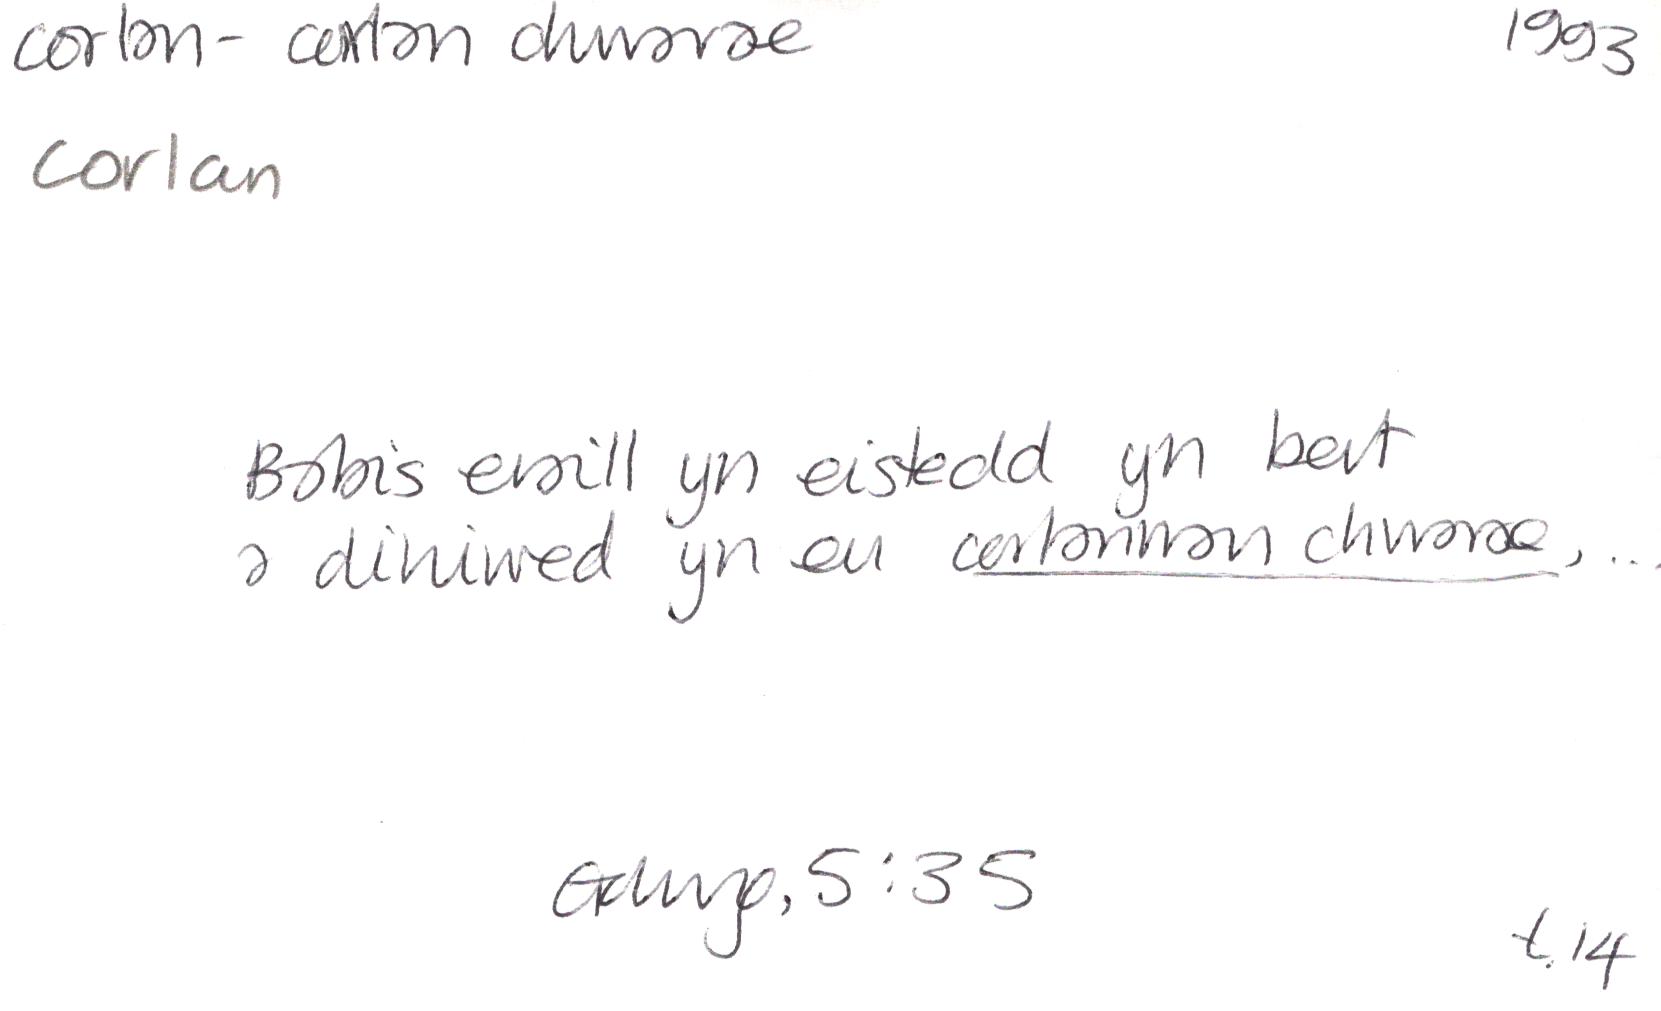 corlan - corlan chwarae 1993
corlan
Babis eraill yn eistedd yn bert
a diniwed yn eu corlannau chwarae, ...
5:35
t. 14